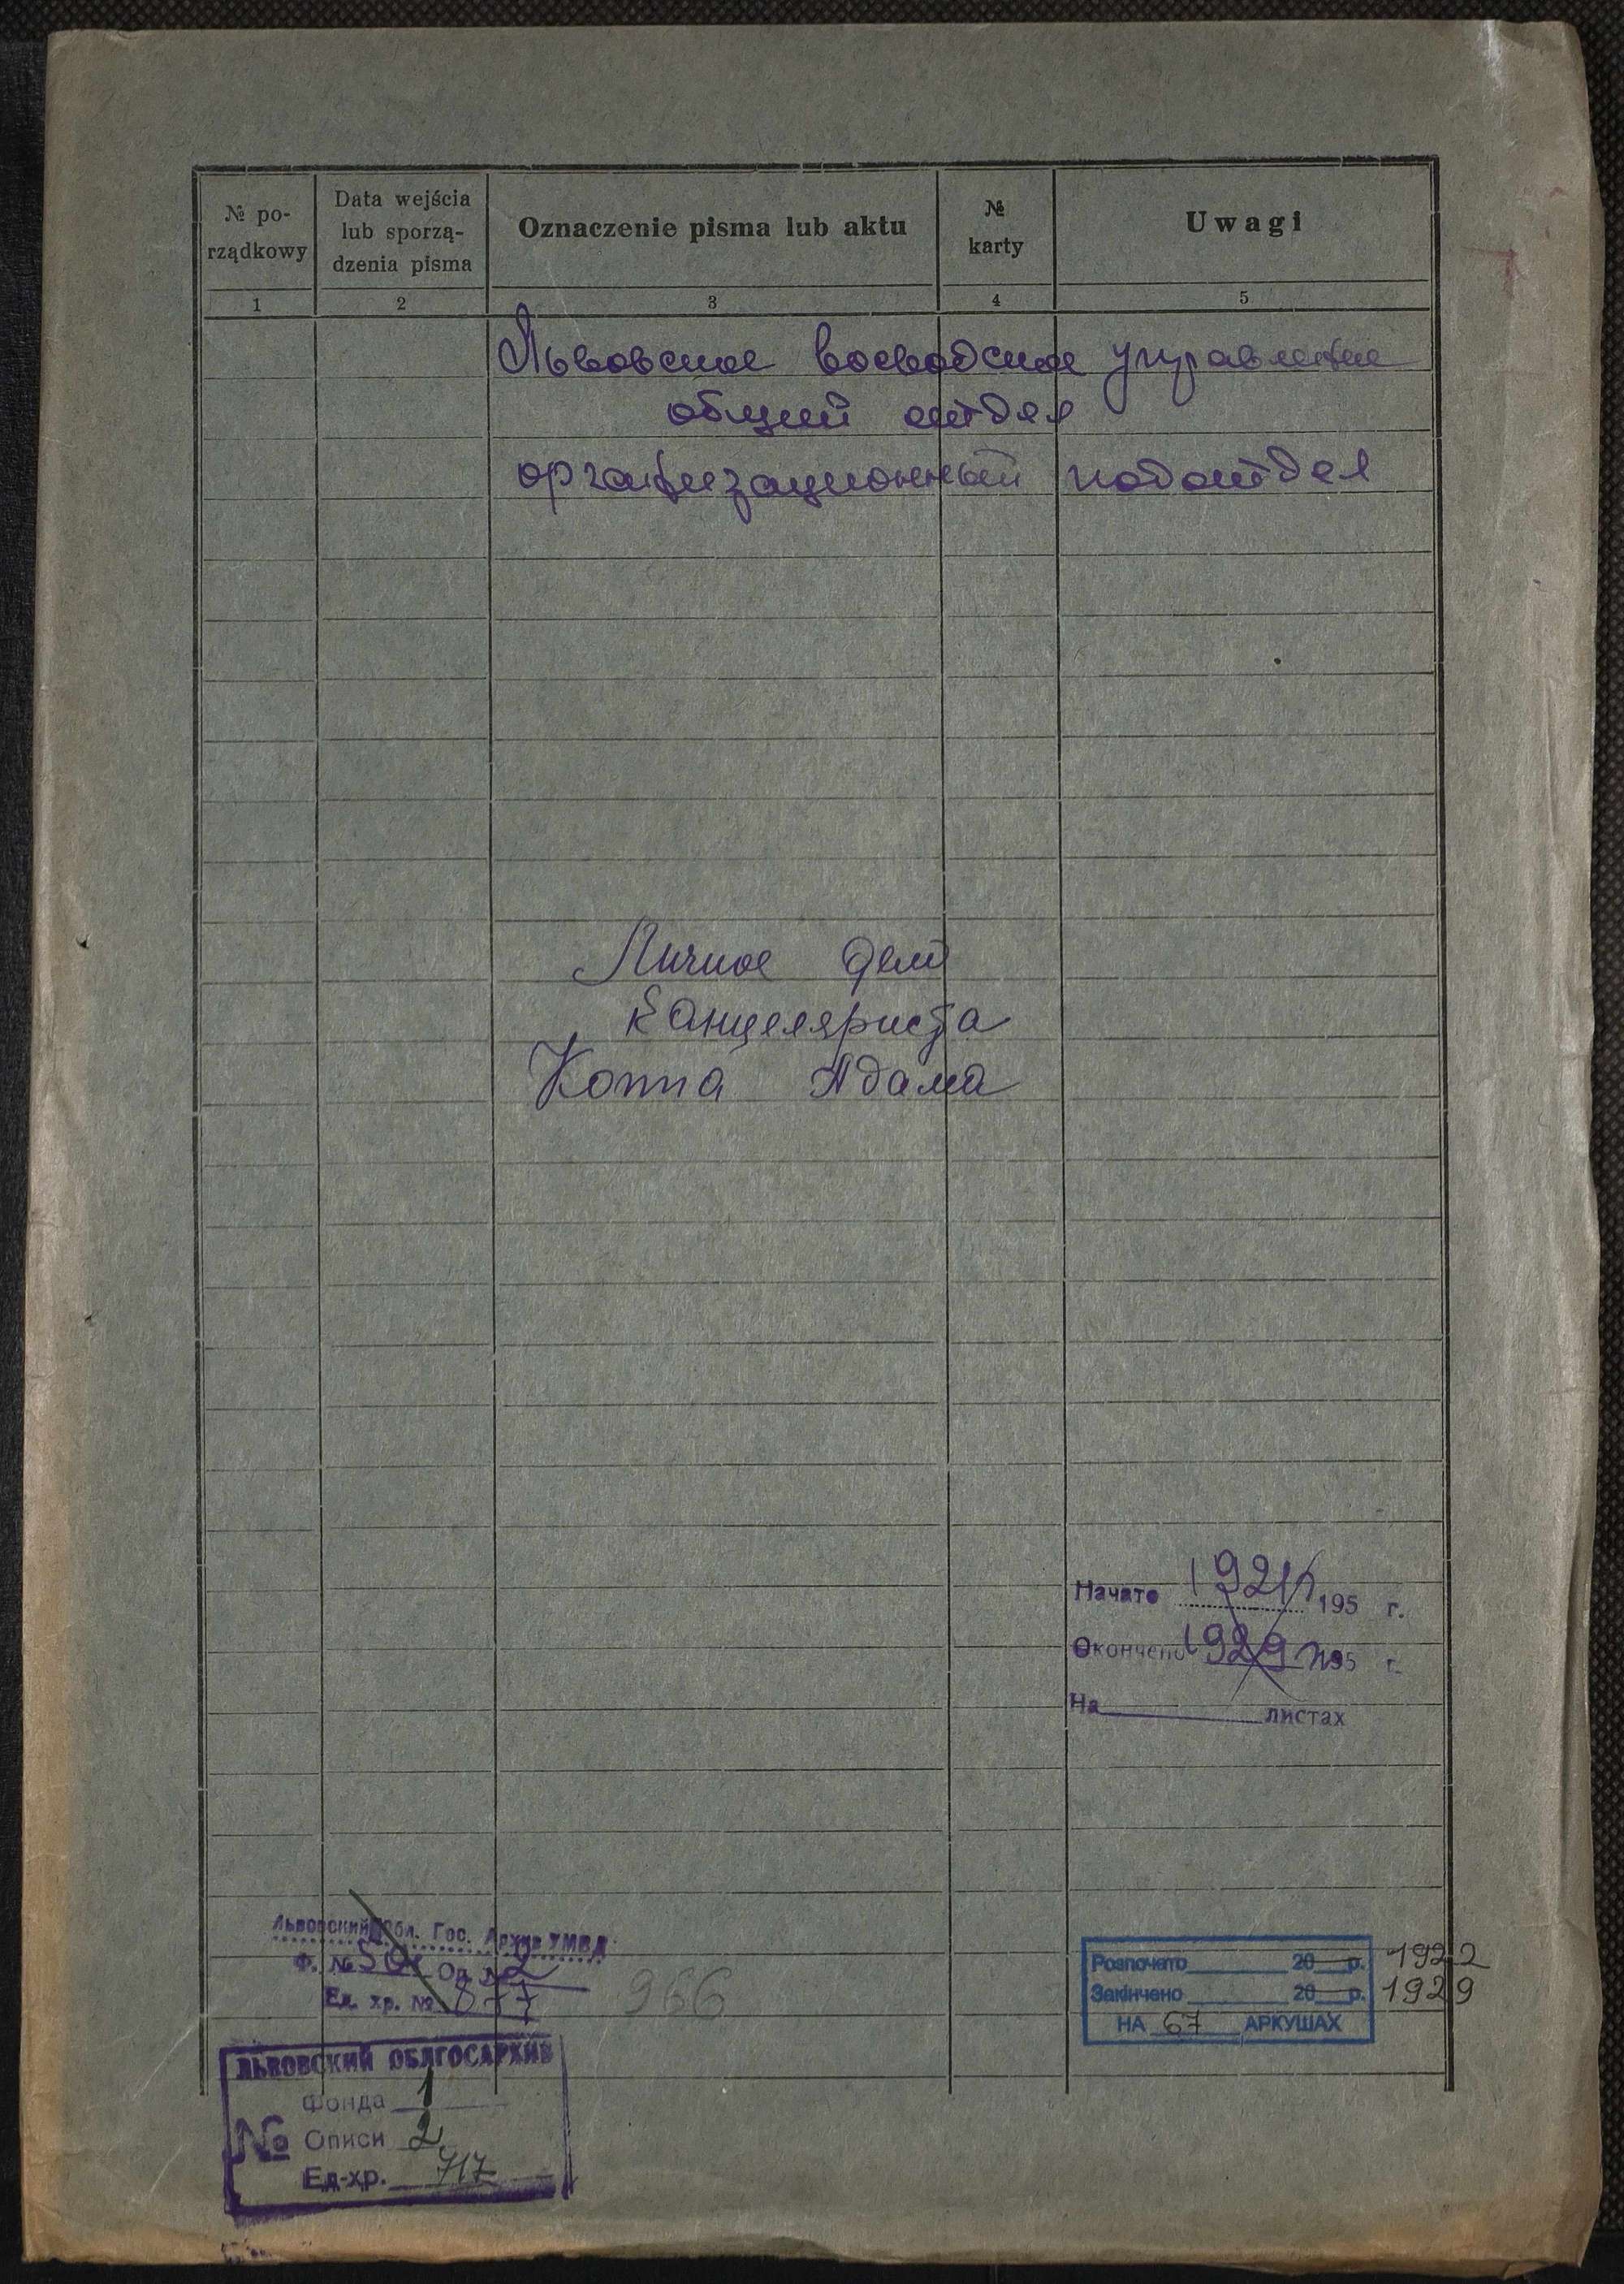 № po-
rządkowy
Data wejścia
lub sporzą-
dzenia pisma
Oznaczenie pisma lub aktu
№
karty
Uwagi
1
2
3
4
5
Львовское воеводское управление
общий отдел
организационный подотдел
Личное дело
Канцеляриста
Коппа Адама
Начато 1921 195 г.
Окончено 1929 195 г.
На листах
Львовский Обл. Гос. Архив УМВД
Ф. № Оп. № 2
Ед. хр. № 877
966
Розпочато 20 р. 1922
Закінчено 20 р. 1929
НА 67 АРКУШАХ
ЛЬВОВСКИЙ ОБЛГОСАРХИВ
Фонда 1
№ Описи 2
Ед-хр. 717